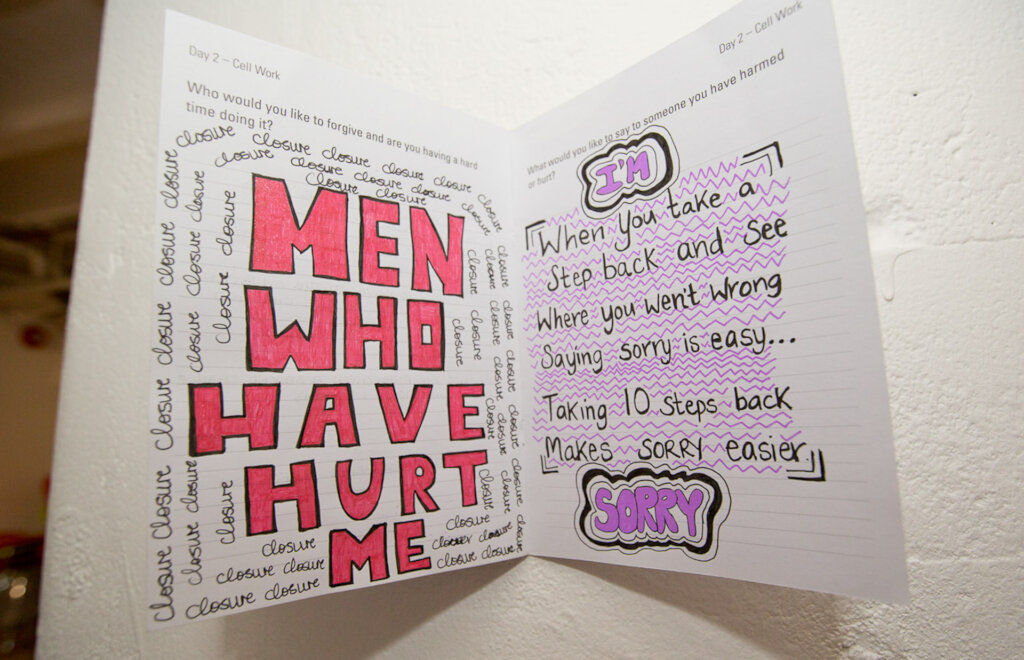 Day 2 – Cell Work
Who would you like to forgive and are you having a hard
time doing it?
closure closure closure closure closure closure
closure closure closure closure closure
closure closure
closure closure closure closure closure closure
closure closure closure closure closure closure
closure closure closure
MEN
WHO
HAVE
HURT
ME
closure closure closure closure
closure closure closure closure closure
closure closure closure closure closure
closure closure
closure closure closure closure closure
closure closure closure closure
Day 2 – Cell Work
What would you like to say to someone you have harmed
or hurt?
I'M
When you take a
Step back and See
Where you wen't Wrong
Saying sorry is easy...
Taking 10 steps back
Makes SORRY easier
SORRY